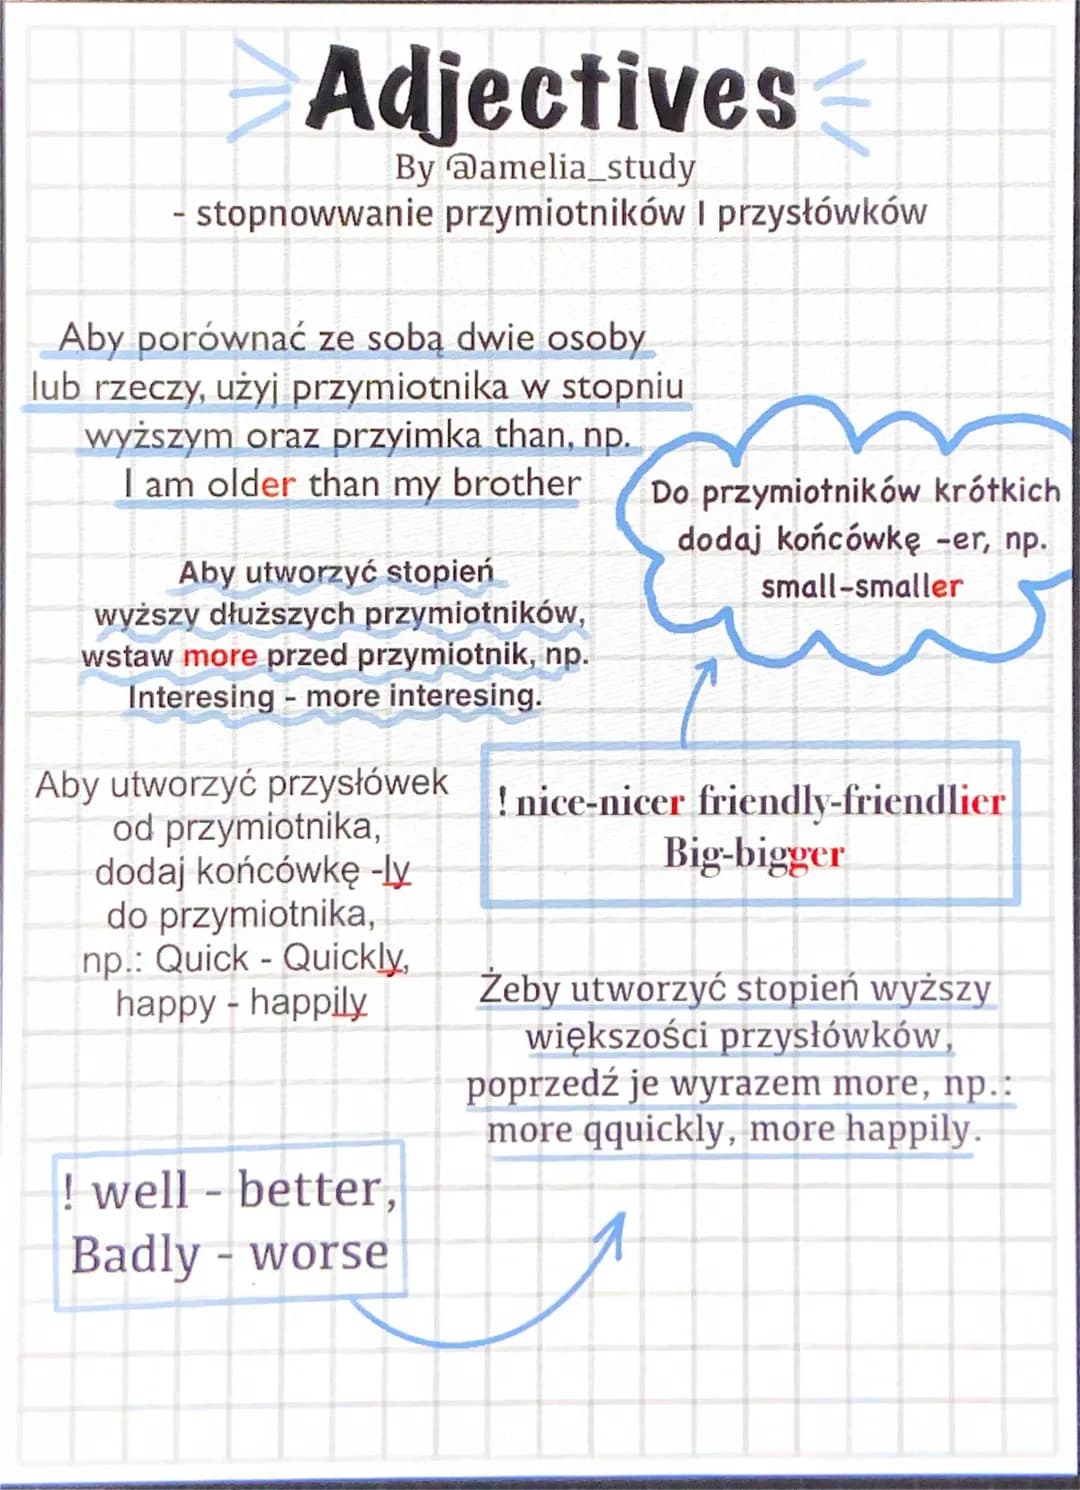 Adjectives
By @amelia_study
- stopnowwanie przymiotników I przysłówków
Aby porównać ze sobą dwie osoby
lub rzeczy, użyj przymiotnika w stopniu
wyższym oraz przyimka than, np.
I am older than my brother
Do przymiotników krótkich
dodaj końcówkę -er, np.
small-smaller
Aby utworzyć stopień
wyższy dłuższych przymiotników,
wstaw more przed przymiotnik, np.
Interesing - more interesing.
! nice-nicer friendly-friendlier
Big-bigger
Aby utworzyć przysłówek
od przymiotnika,
dodaj końcówkę -ly
do przymiotnika,
np.: Quick - Quickly,
happy - happily
Żeby utworzyć stopień wyższy
większości przysłówków,
poprzedź je wyrazem more, np.:
more qquickly, more happily.
! well - better,
Badly - worse